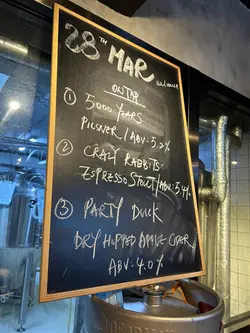 28TH MAR
ON TAP
① 5000 YEARS
PILSNER / ABV: 5.2%
② CRAZY RABBITS-
ESPRESSO STOUT / ABV: 5.4%
③ PARTY DUCK
DRY HOPPED APPLE CIDER
ABV: 4.0%